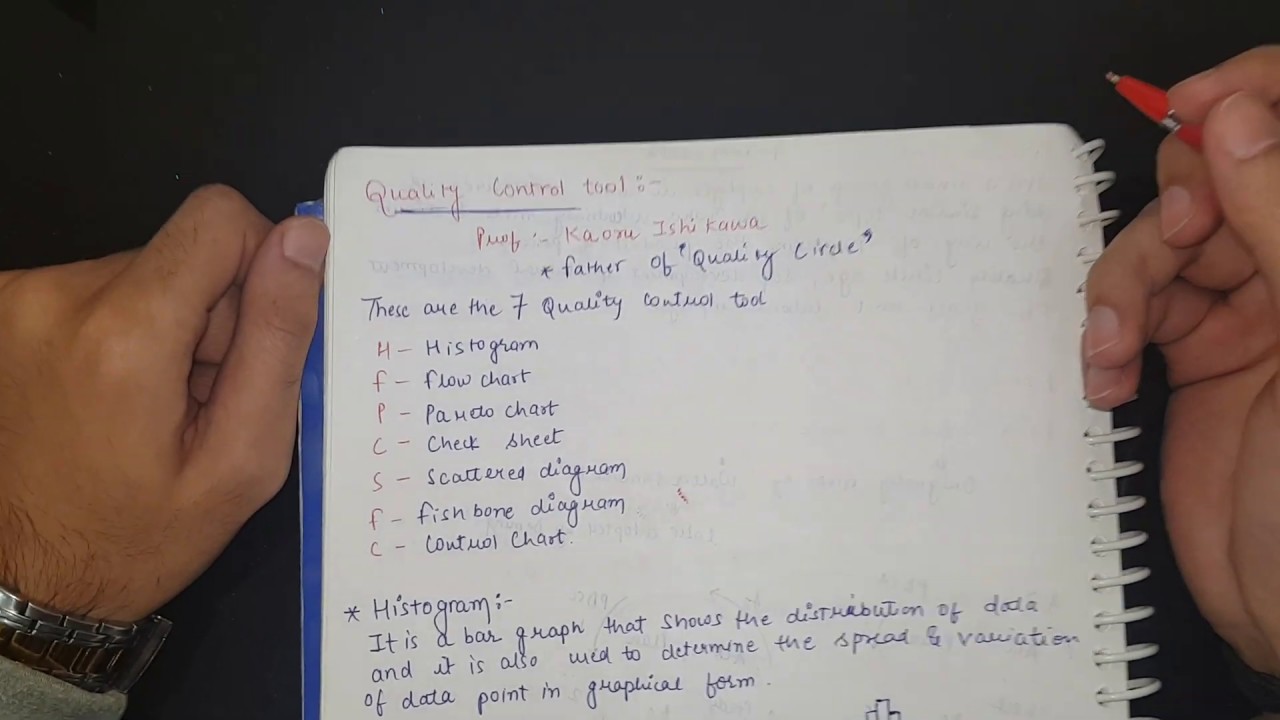 Quality Control tool :-
Prof :- Kaoru Ishikawa
* father of "Quality Circle"
These are the 7 Quality control tool
H - Histogram
f - flow chart
P - Pareto chart
C - Check sheet
S - Scattered diagram
f - fishbone diagram
C - Control Chart.
* Histogram :-
It is a bar graph that shows the distribution of data
and it is also used to determine the spread & variation
of data point in graphical form.